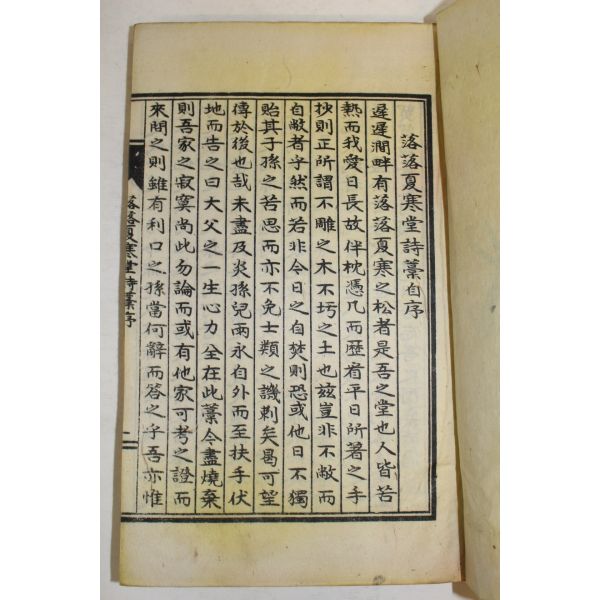 落落夏寒堂詩藁自序
遲遲澗畔有落落夏寒之松者是吾之堂也人皆苦
熱而我愛日長故伴枕憑几而歷看平日所著之手
抄則正所謂不雕之木不圬之土也玆豈非不敝而
自敝者乎然而若非今日之自焚則恐或他日不獨
貽其子孫之苦思而亦不免士類之譏刺矣曷可望
傳於後也哉未盡及炎孫兒兩永自外而至扶手伏
地而告之曰大父之一生心力全在此藁今盡燒棄
則吾家之寂寞尚此勿論而或有他家可考之證而
來問之則雖有利口之孫當何辭而答之乎吾亦惟
落落夏寒堂詩藁序
一